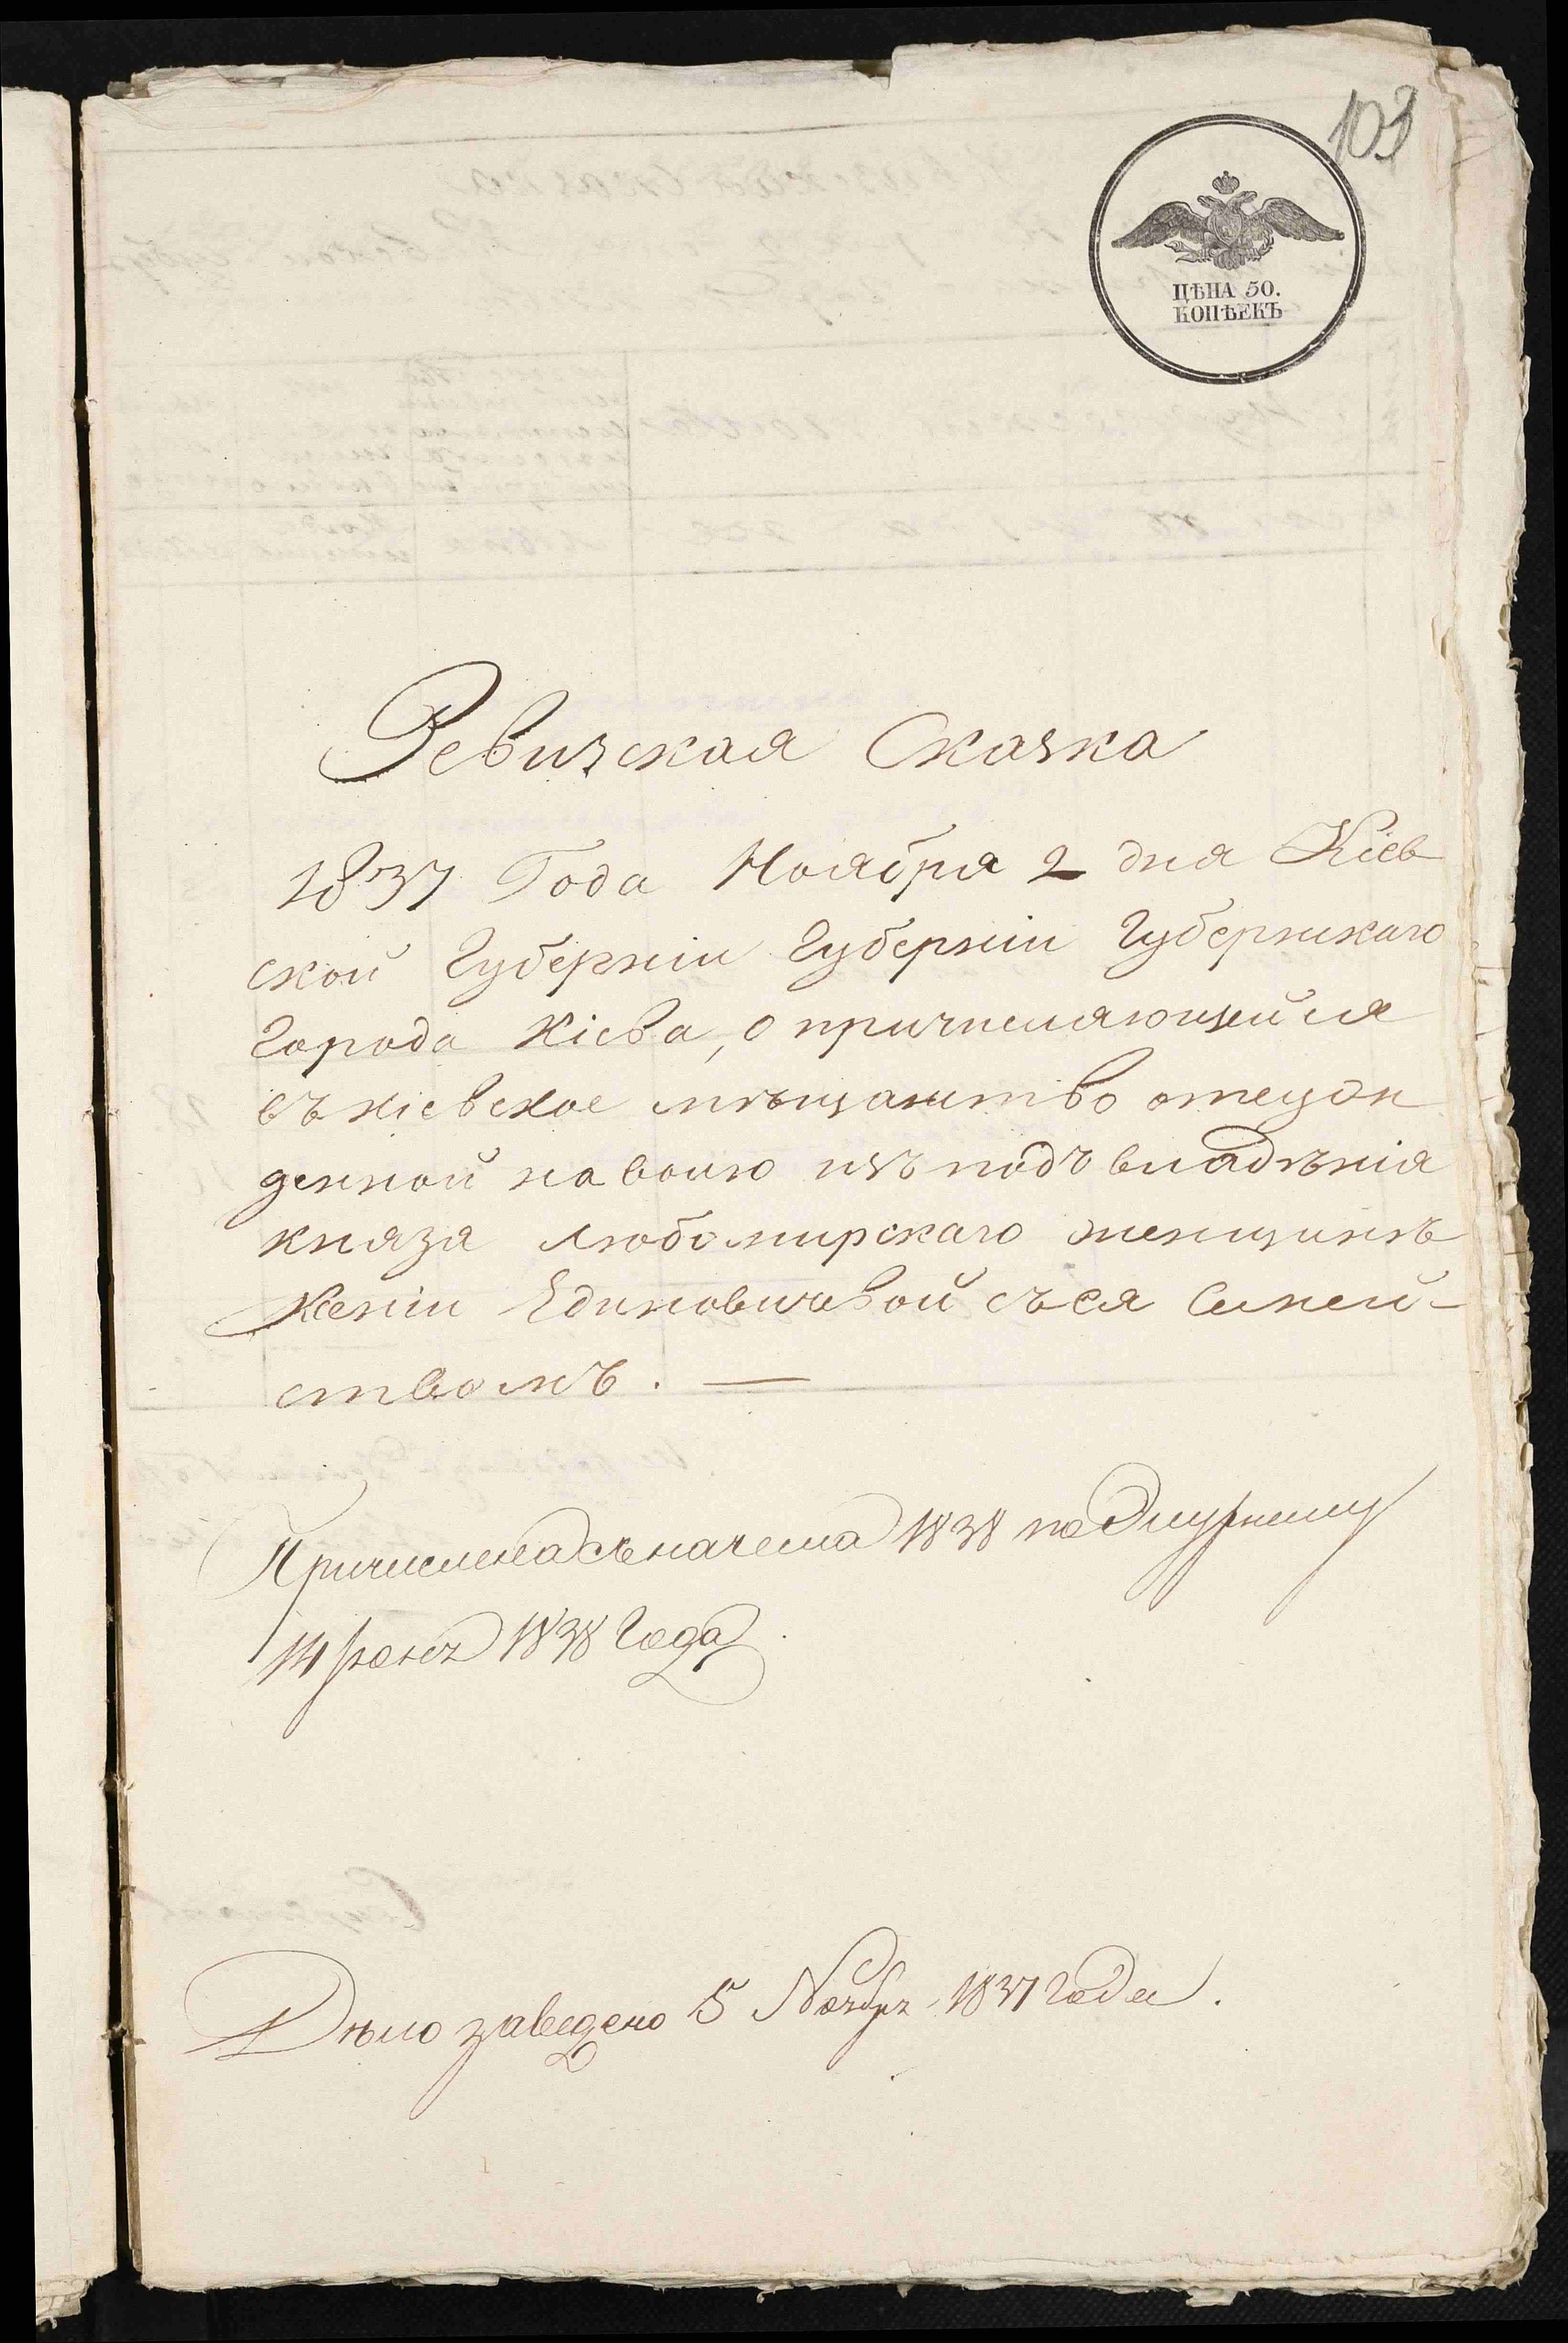 103
ЦѢНА 50.
КОПѢЕКЪ
Ревизская Сказка
1837 Года Ноября 2 дня Кіев
ской Губерніи Губерніи Губернскаго
Города Кіева, о причисляющейся
въ кіевское мѣщанство отпущен
ной на волю изъ подъ владѣнія
князя Любомирскаго женщинѣ
Ксеніи Единовичевой съ ея Семей-
ствомъ. —
Причислена съ начала 1838 по
14 1838 Года
Дѣло заведено 5 Ноября 1837 года.